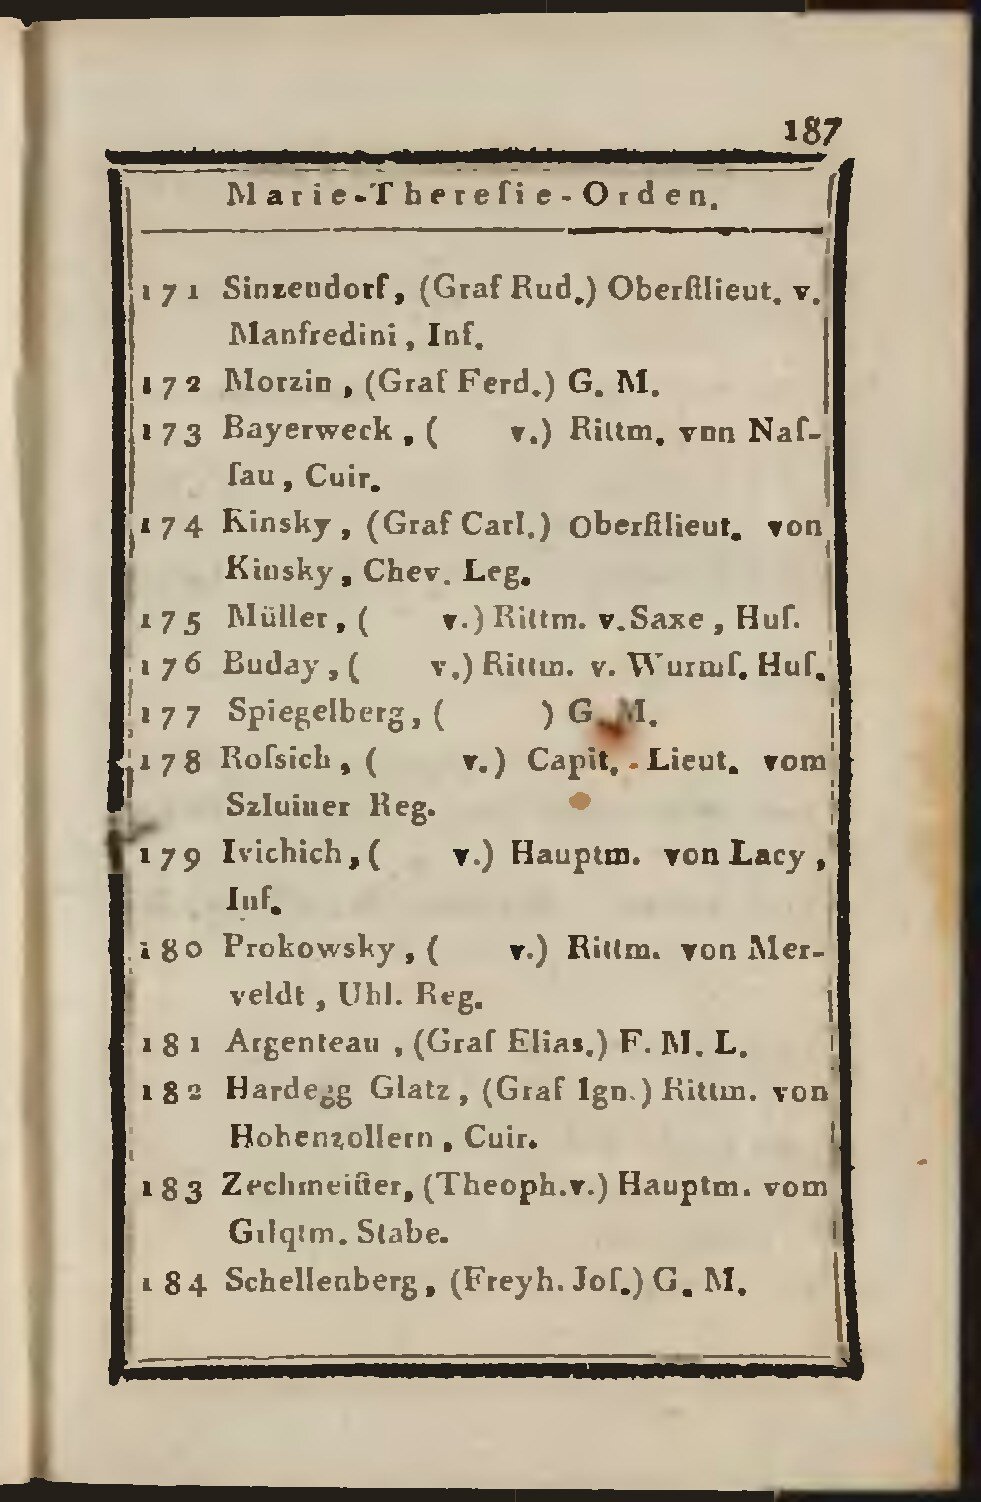 187
Marie-Thereſie-Orden.
171 Sinzendorf, (Graf Rud.) Oberſtlieut. v.
Manfredini, Inf.
172 Morzin, (Graf Ferd.) G. M.
173 Bayerweck, ( v.) Rittm. von Naſ-
ſau, Cuir.
174 Kinsky, (Graf Carl.) Oberſtlieut. von
Kinsky, Chev. Leg.
175 Müller, ( v.) Rittm. v. Saxe, Huſ.
176 Buday, ( v.) Rittm. v. Wurmſ. Huſ.
177 Spiegelberg, ( ) G. M.
178 Roſsich, ( v.) Capit. - Lieut. vom
Szluiner Reg.
179 Ivichich, ( v.) Hauptm. von Lacy,
Inf.
180 Prokowsky, ( v.) Rittm. von Mer-
veldt, Uhl. Reg.
181 Argenteau, (Graf Elias.) F. M. L.
182 Hardegg Glatz, (Graf Ign.) Rittm. von
Hohenzollern, Cuir.
183 Zechmeiſter, (Theoph. v.) Hauptm. vom
Gilqtm. Stabe.
184 Schellenberg, (Freyh. Joſ.) G. M.